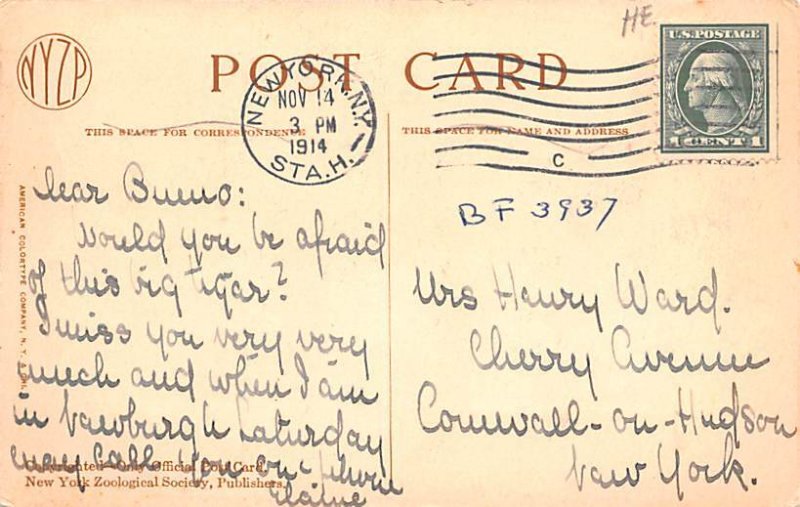 HE.
NYZP
POST CARD
U.S. POSTAGE
1 CENT 1
NEW YORK, N.Y.
NOV 14
3 PM
1914
STA.H.
C
THIS SPACE FOR CORRESPONDENCE
THIS SPACE FOR NAME AND ADDRESS
BF 3937
AMERICAN COLORTYPE COMPANY, N. Y.
Dear Bueno:
Would you be afraid
of this big tiger?
I miss you very very
much and when I am
in Newburgh Saturday
may call you on phone
Elaine
Mrs Henry Ward.
Cherry Avenue
Cornwall-on-Hudson
New York.
Copyrighted—Only Official Post Card,
New York Zoological Society, Publishers.